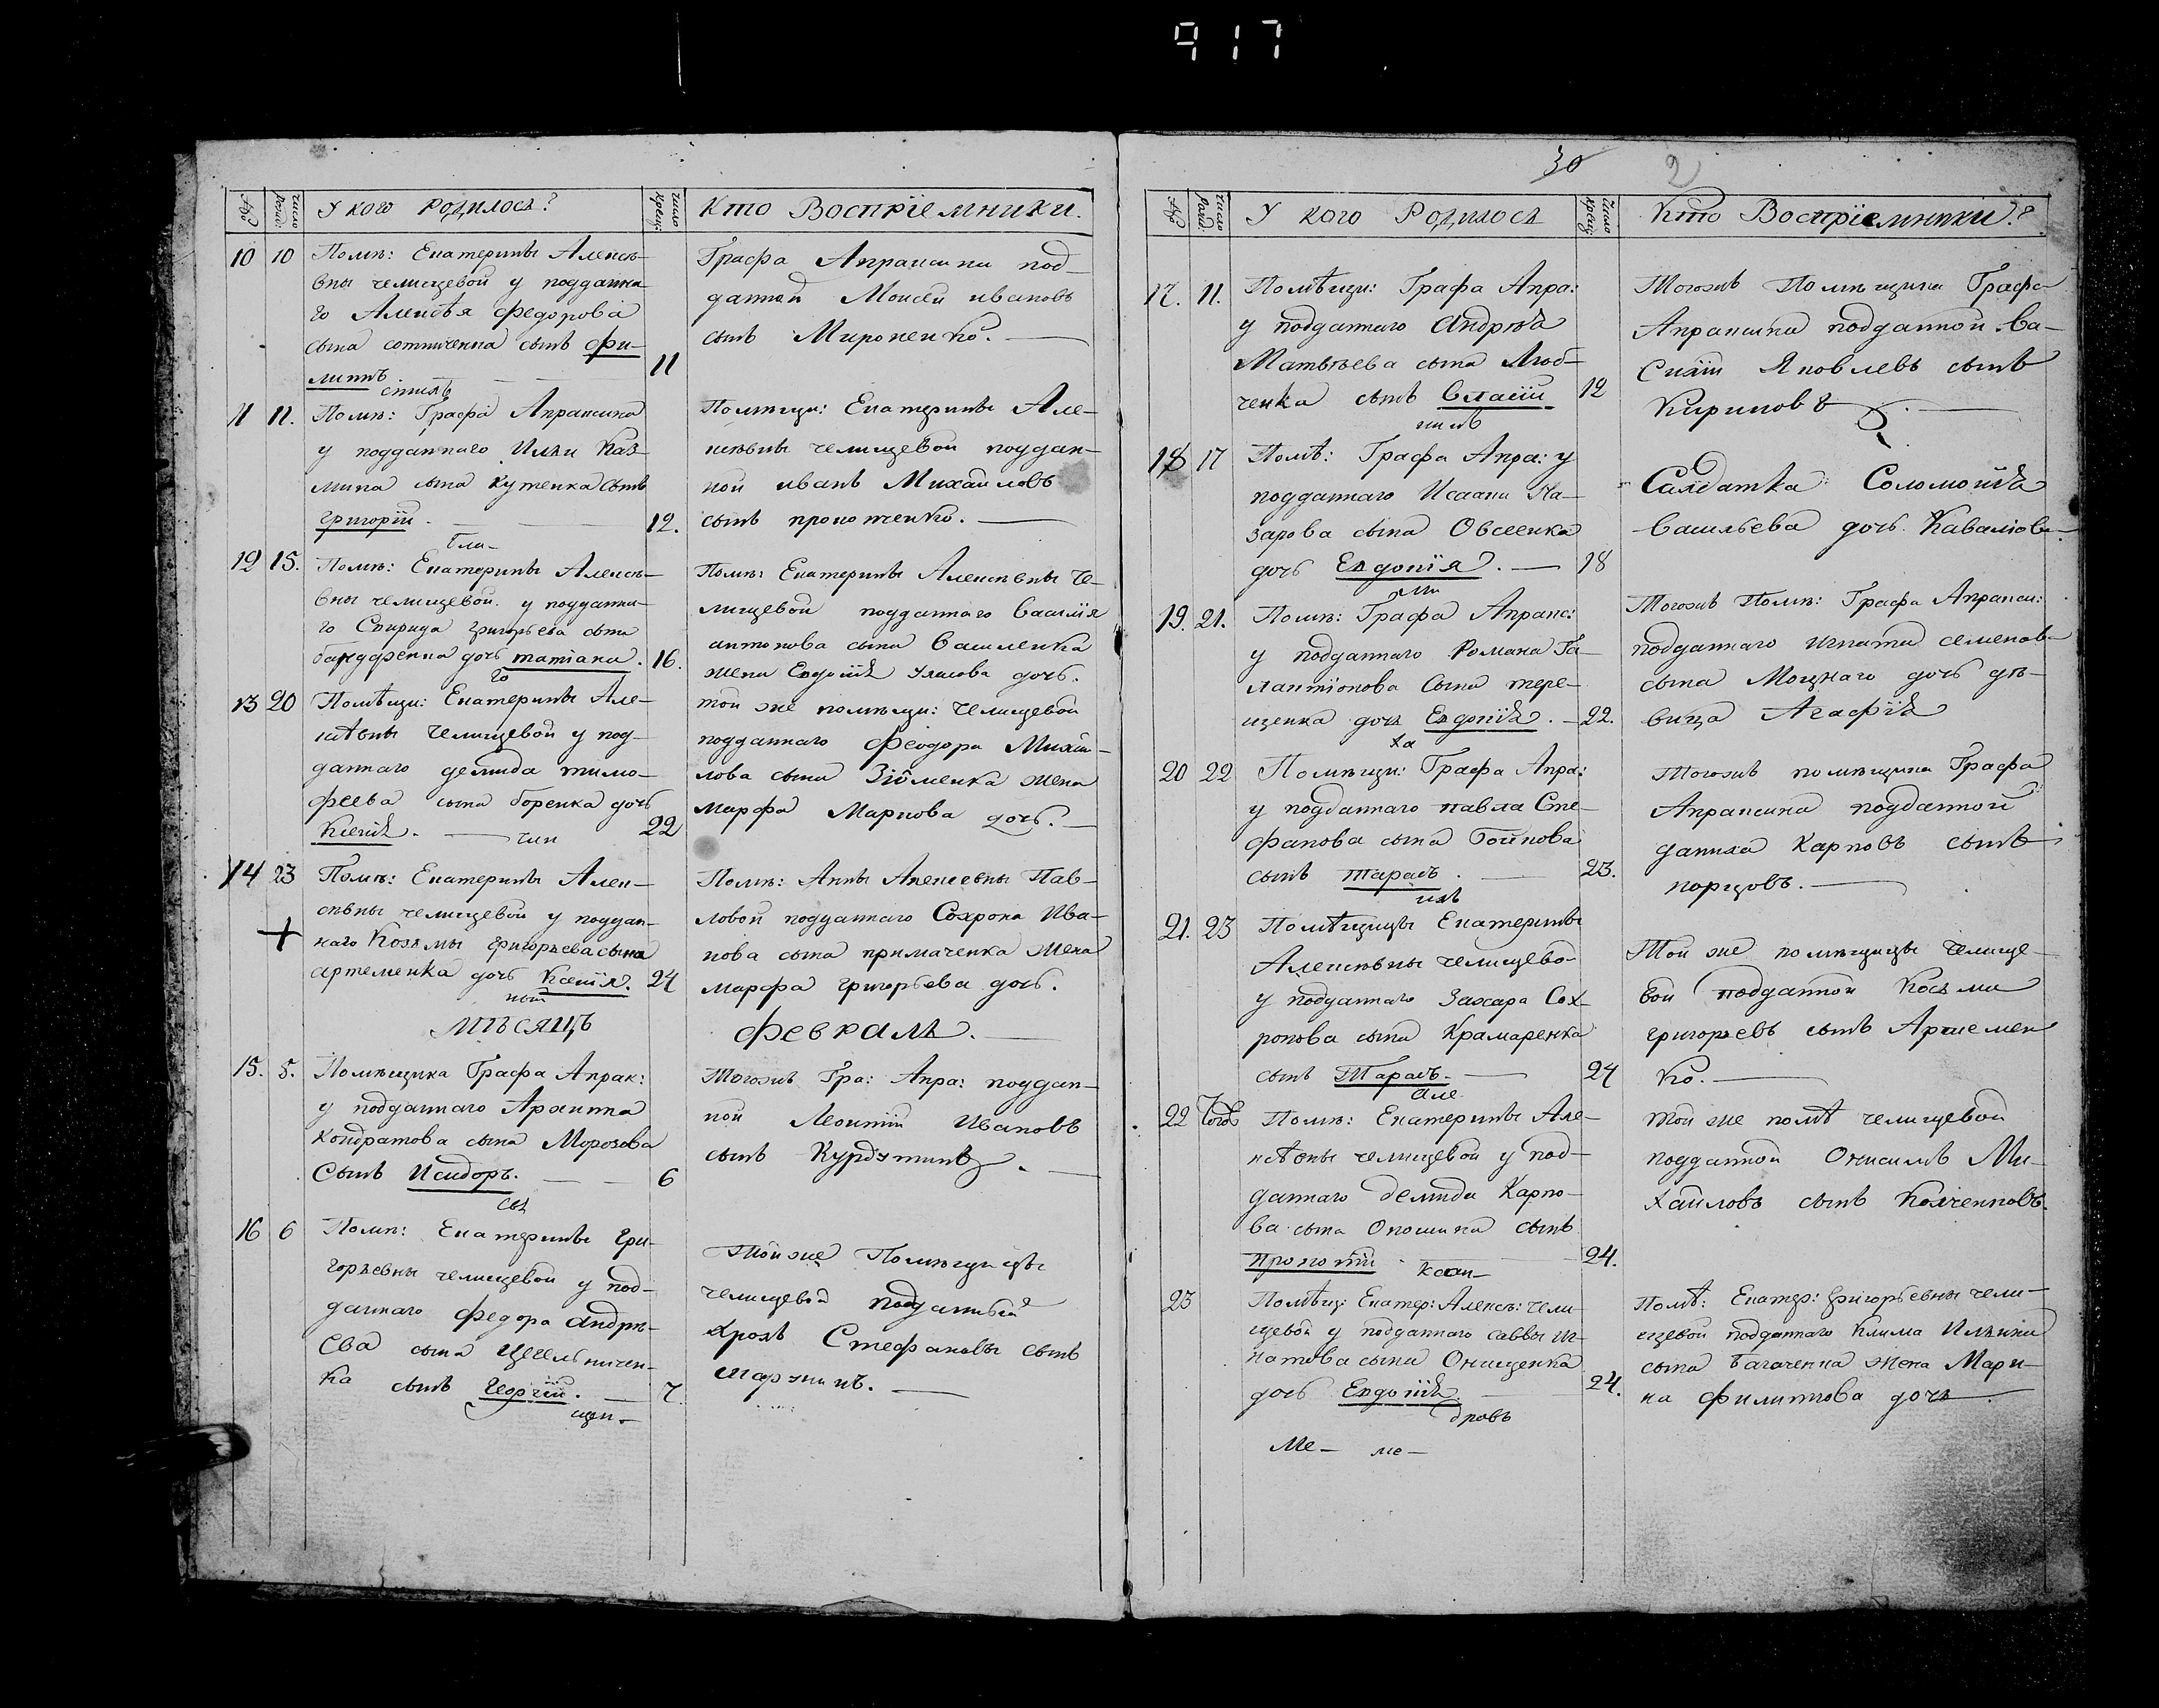 917
30 2
№
число рожд:
У кого Родилося?
число крещ:
Кто Воспріемники.
10 10
Помѣ: Екатерины Алексѣ-
вны челищевой у подданна
го Алексѣя Федорова
сына сотниченка сынъ Фи-
липпъ 11
Графа Апраксина под-
данной Моисей ивановъ
сынъ Мироненко.
11 11.
Помѣ: Графа Апраксина
у подданнаго Ильи Каз-
мина сына Кутенка сынъ
Григорій. 12.
Помѣщи: Екатерины Але-
ксѣвны челищевой поддан-
ной иванъ Михайловъ
сынъ прокопенко.
12 15.
Помѣ: Екатерины Алексѣ-
вны челищевой у поданна-
го Спирида григорьева сына
дочь татіана. 16.
Помѣ: Екатерины Алексѣвны Че-
лищевой подданнаго Василія
антонова сына Василенка
жена Евдокія Уласова дочь.
13 20
Помѣщи: Екатерины Але-
ксѣвны Челищевой у под-
даннаго демида тимо-
феева сына боренка дочь
Ксенія. 22
той же помѣщи: Челищевой
подданнаго Феодора Михай-
лова сына Зюменка жена
марфа Маркова дочь.
14 23
Помѣ: Екатерины Алек-
сѣвны челищевой у поддан-
наго Козьмы григорьева сына
артеменка дочь Ксенія. 24
Помѣ: Анны Алексеевны Пав-
ловой подданнаго Сохрона Ива-
нова сына примаченка жена
марфа григорьева дочь.
мѣсяцъ
февраль.
15. 5.
Помѣщика Графа Апрак:
у подданнаго Архиппа
кондратова сына Морозова
Сынъ Исидоръ. 6
Тогожъ Гра: Апра: поддан-
ной Леонтій Ивановъ
сынъ
16 6
Помѣ: Екатерины Гри-
горьевны челищевой у под-
даннаго федора андрѣ-
ева сына Цегельничен-
ка сынъ Георгій. 7.
Той же Помѣщицы
челищевой подданной
Стефановъ сынъ
№
число рожд:
У кого Родилося
число крещ:
Кто Воспріемники?
17. 11.
Помѣщи: Графа Апра:
у подданнаго Андрѣя
Матвѣева сына Люб-
ченка сынъ Власій 12
Тогожъ Помѣщика Графа
Апраксина подданной Ва-
Силій Яковлевъ сынъ
Кириковъ
18 17
Помѣ: Графа Апра: у
подданнаго Исааки На-
зарова сына Овсеенка
дочь Евдокія. 18
Салдатка Соломонія
Васильева дочь Ковалева.
19. 21.
Помѣ: Графа Апракс:
у подданнаго Романа Га-
лактіонова Сына тере-
щенка дочь Евдокія. 22.
Тогожъ Помѣ: Графа Апракси:
подданнаго игната семенова
сына Моцнаго дочь дѣ-
вица Агафія
20 22
Помѣщи: Графа Апра:
у подданнаго павла Сте-
фанова сына Гойнова
сынъ тарасъ. 23.
Тогожъ помѣщика Графа
Апраксина подданной
данила Карповъ сынъ
21. 23
Помѣщицы Екатерины
Алексѣвны челищево-
у подданнаго Захара Сох-
ронова сына Крамаренка
сынъ Тарасъ. 24
Той же помѣщицы Челище-
вой подданной Косьма
григорьевъ сынъ Артемен
ко.
22 того
Помѣ: Екатерины Але-
ксѣвны челищевой у под-
даннаго демида Карпо-
ва сына Опошика сынъ
прокопій 24.
той же помѣ челищевой
подданной Онисимъ Ми-
хайловъ сынъ Колченковъ.
23
Помѣщ: Екатер: Алексѣ: Чели-
щевой у подданнаго саввы иг-
натова сына Онищенка
дочь Евдокія. 24.
Помѣ: Екатер: григорьевны чели-
щевой подданнаго Клима Илькина
сына багаченка жена Мари-
на филиппова дочь
Ме- ме-